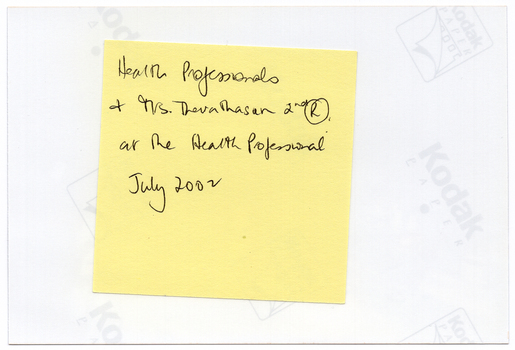 Health Professionals
+ Mrs. Thevathasan 2nd R.
at the Health Professional
July 2002
Kodak
PAPER
Kodak
PAPER
Kodak
Kodak